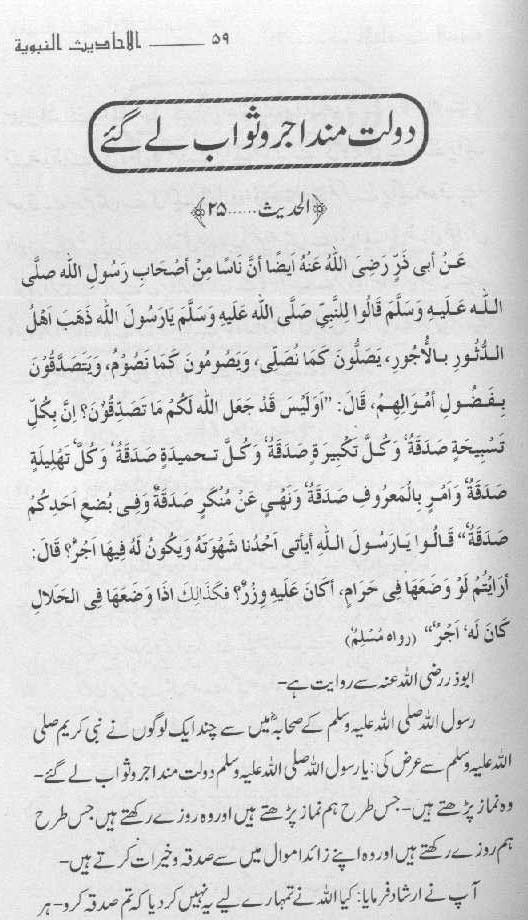 الاحادیث النبویة ـــــــ ۵۹
دولت مند اجر و ثواب لے گئے
﴿الحدیث......۲۵﴾
عَنْ أبی ذَرٍّ رَضِیَ اللّٰهُ عَنْهُ اَیضًا أنَّ نَاسًا مِنْ أصْحَابِ رَسُولِ الله صلَّی
اللّٰه عَلَیهِ وَسَلَّمَ قَالُوا لِلنَّبِیِّ صَلَّی الله عَلَیهِ وَسَلَّم یَارَسُولَ الله ذَهَبَ اَهْلُ
الدُّثُورِ بالأُجُورِ، یَصَلُّونَ کَمَا نُصَلِّی، وَیَصُومُونَ کَمَا نَصُوْمُ، وَیَتَصَدَّقُوْنَ
بِفُضُولِ أمْوَالِهِمْ، قَالَ: "اَوَلَیْسَ قَدْ جَعَلَ الله لَکُمْ مَا تَصَدِّقُوْنَ؟ اِنَّ بِکُلِّ
تَسْبِیحَةٍ صَدَقَةً وَکُلِّ تَکْبِیرَةٍ صَدَقَةً وَکُلِّ تحمیدَةٍ صَدَقَةً وَکُلِّ تَهْلِیلَةٍ
صَدَقَةً وَاَمْرٍ بِالْمَعرُوفِ صَدَقَةً وَنَهْیٍ عَنْ مُنْکَرٍ صَدَقَةً وَفِی بُضعِ اَحَدِکُمْ
صَدَقَةً" قَالُوا یَارَسُولَ اللّٰهِ أیأتی اَحَدُنا شَهْوَتَهُ وَیَکُونُ لَهُ فِیهَا اَجْرٌ؟ قَالَ:
أرَایْتُمْ لَوْ وَضَعَهَا فِی حَرَامٍ، اَکَانَ عَلَیهِ وِزْرٌ؟ فَکَذَالِکَ اِذَا وَضَعَهَا فِی الحَلَالِ
کَانَ لَه، اَجْرٌ" (رواه مُسْلِمٌ)
ابوذر رضی اللہ عنہ سے روایت ہے-
رسول اللہ صلی اللہ علیہ وسلم کے صحابہؓ میں سے چند ایک لوگوں نے نبی کریم صلی
اللہ علیہ وسلم سے عرض کی: یا رسول اللہ صلی اللہ علیہ وسلم دولت مند اجر و ثواب لے گئے-
وہ نماز پڑھتے ہیں- جس طرح ہم نماز پڑھتے ہیں اور وہ روزے رکھتے ہیں جس طرح
ہم روزے رکھتے ہیں اور وہ اپنے زائد اموال میں سے صدقہ و خیرات کرتے ہیں-
آپ نے ارشاد فرمایا: کیا اللہ نے تمہارے لیے یہ نہیں کر دیا کہ تم صدقہ کرو- ہر